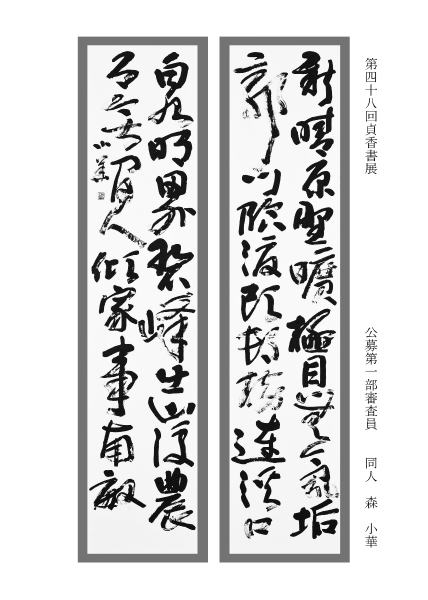 第四十八回貞香書展
公募第一部審査員 同人 森 小華
新晴原野曠極目無氛垢
郭門臨渡頭村樹連渓口
白水明田外碧峰出山後農
月無閒人傾家事南畝
小華